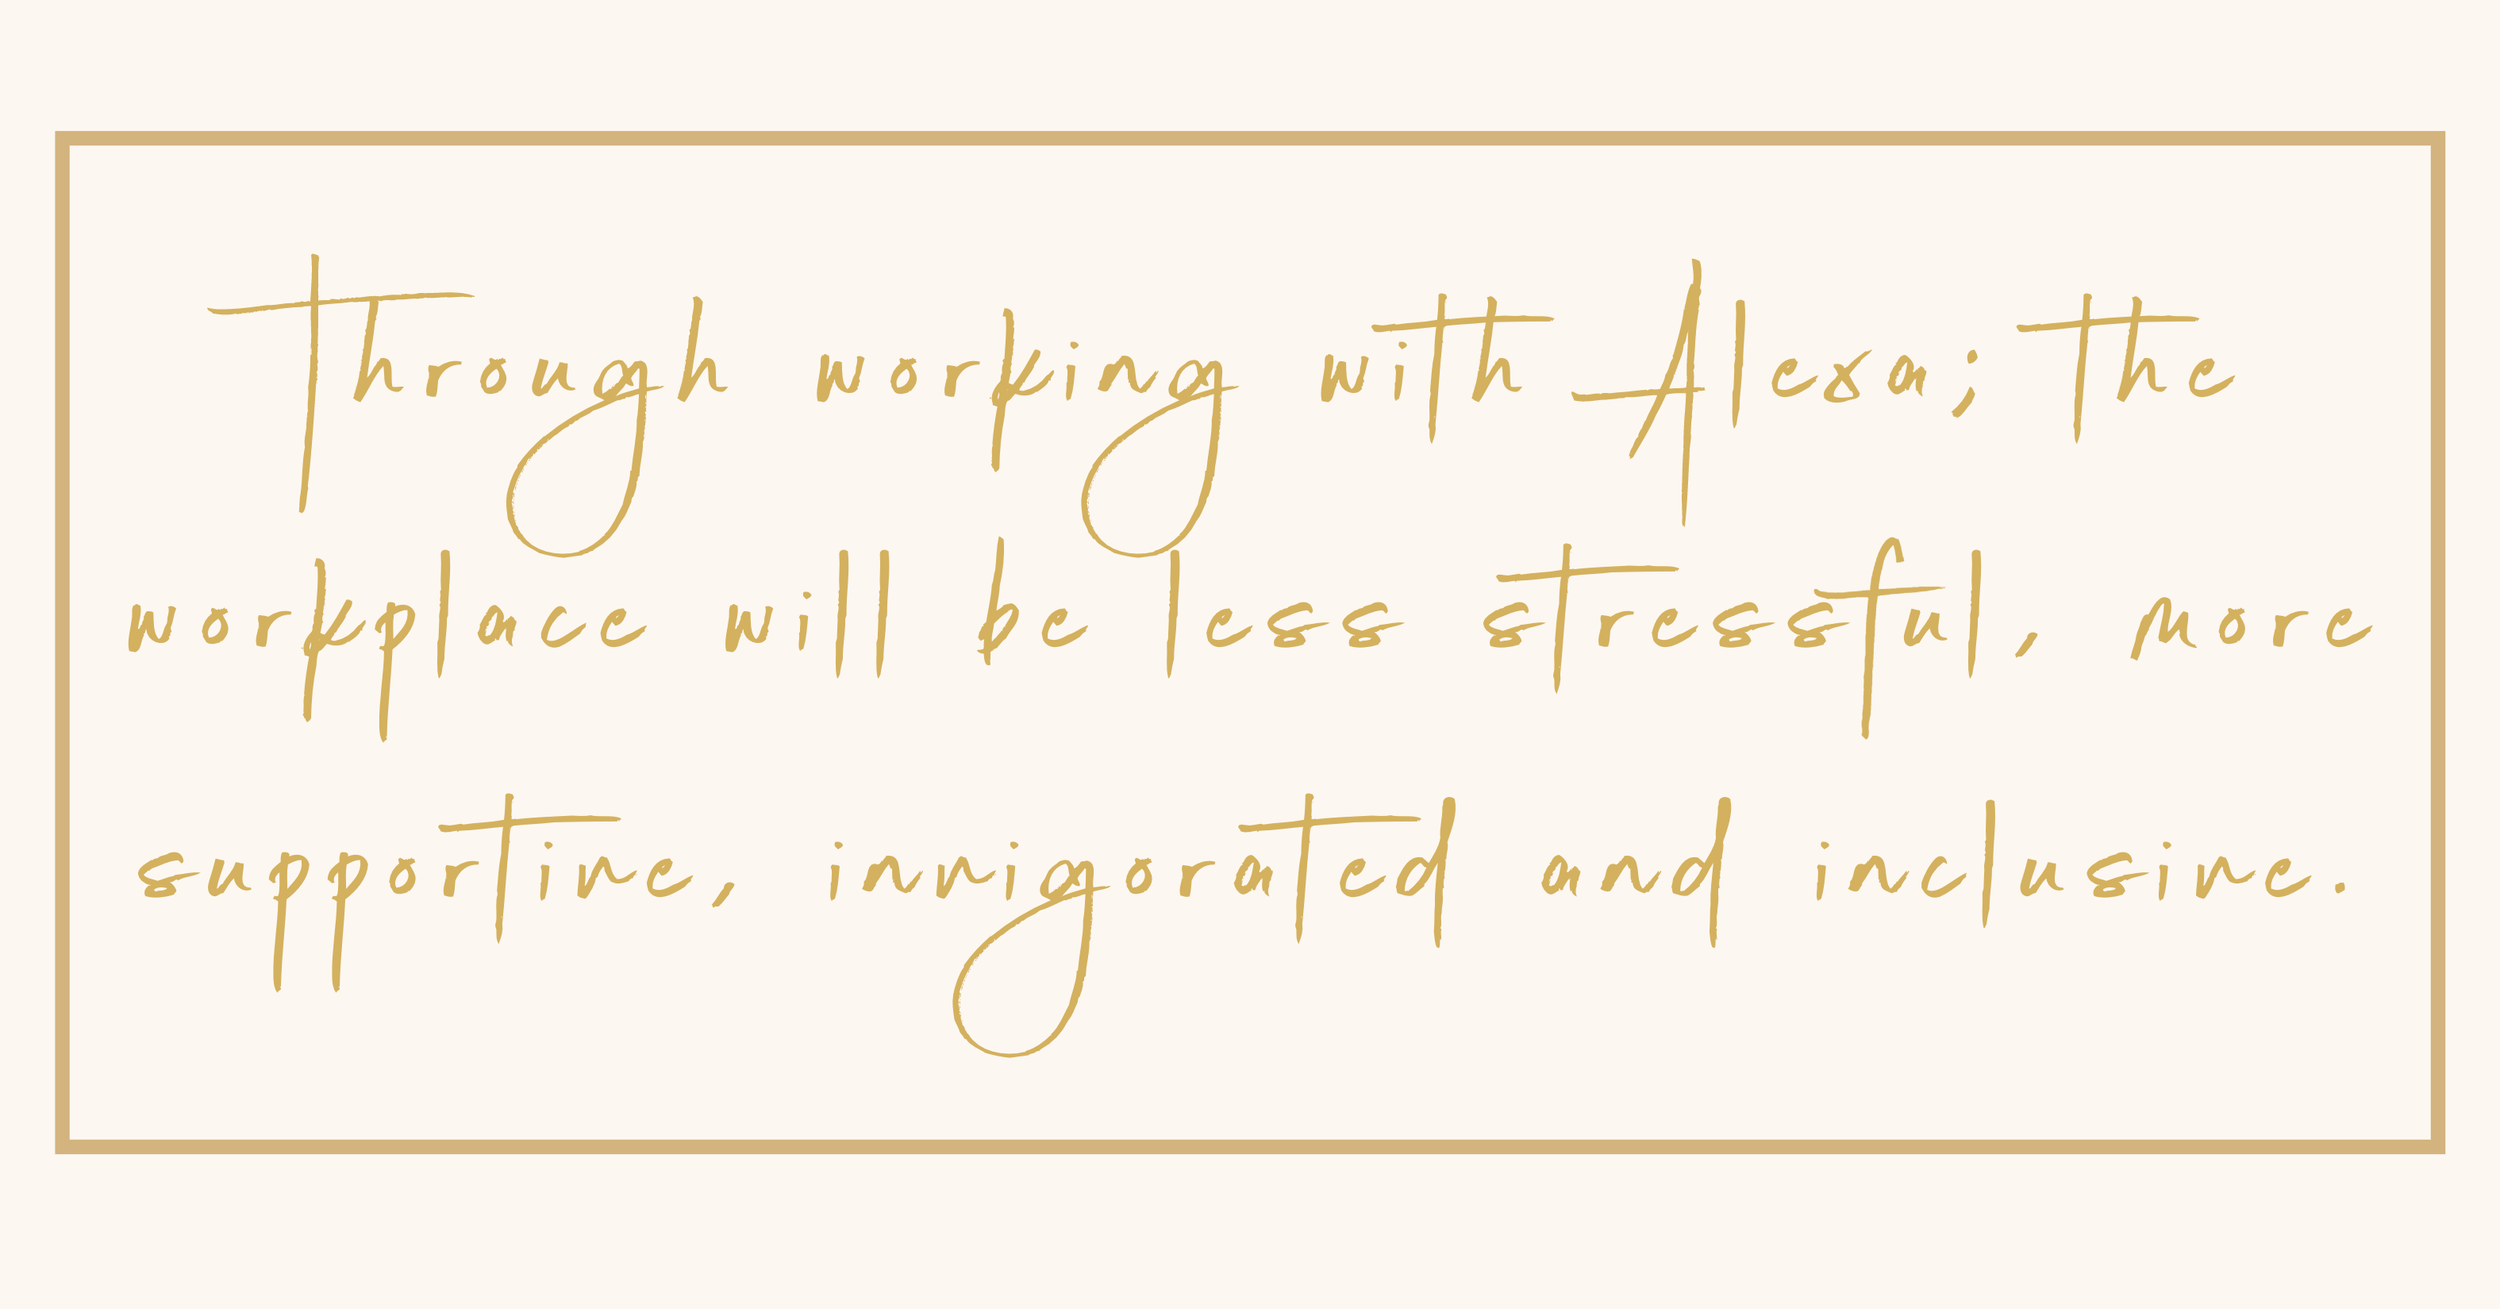 Through working with Alexa; the
workplace will be less stressful, more
supportive, invigorated and inclusive.